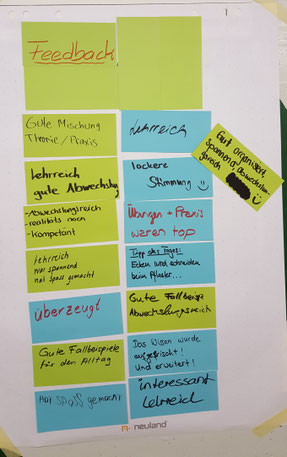 Feedback
Gute Mischung
Theorie/Praxis
lehrreich
gute Abwechslung
- Abwechslungsreich
- realitäts nach
- kompetänt
lehrreich
war spannend
hat Spass gemacht
überzeugt
Gute Fallbeispiele
für den Alltag
Hat Spaß gemacht
lehrreich
lockere
Stimmung
Übungen + Praxis
waren top
Tipp des Tages:
Ecken rund schneiden
beim Pflaster...
Gute Fallbeisp.
Abwechslungsreich
Das Wissen wurde
aufgefrischt!
Und erweitert!
interessant
Lehrreich
Gut organisiert
Spannend, abwechslun-
gsreich
neuland